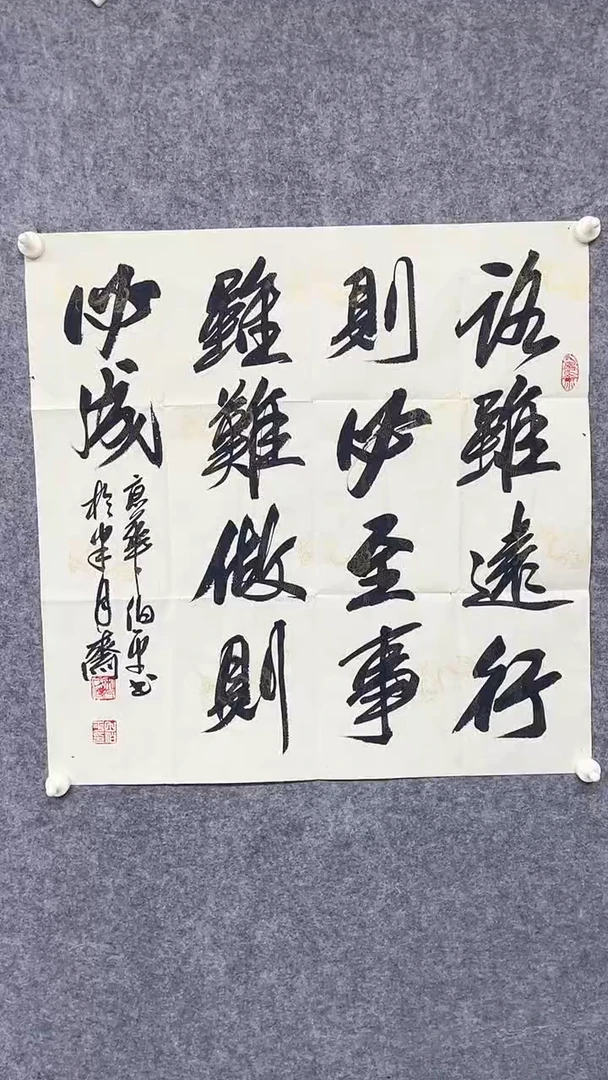 路雖遠行
則必至事
雖難做則
必成
京華伯平书
於半月齋